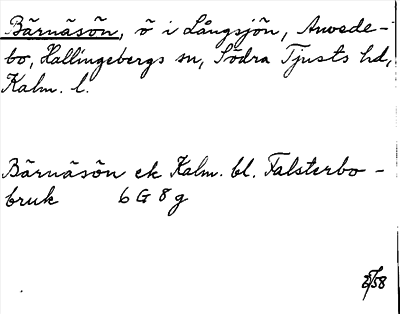 Bärnäsön, ö i Långsjön, Anvede-
bo, Hallingebergs sn, Södra Tjusts hd,
Kalm. l.
Bärnäsön ek Kalm. bl. Falsterbo-
bruk 6 G 8 g